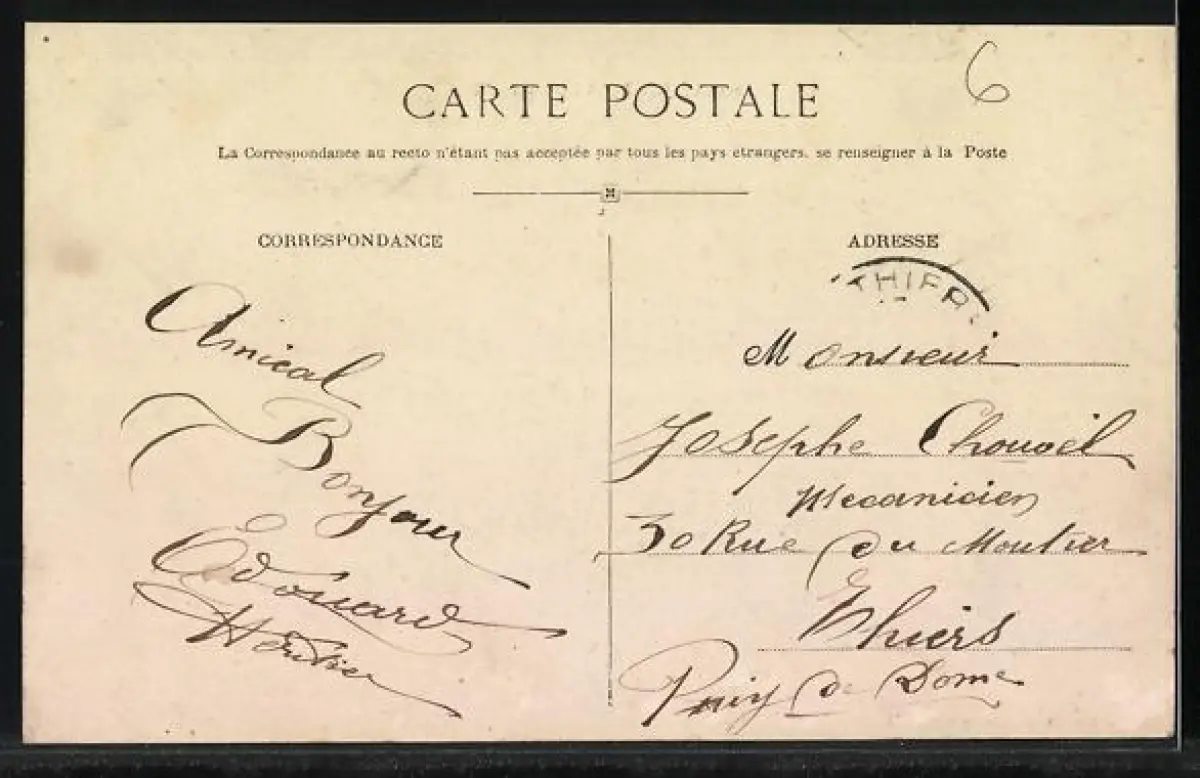 6
CARTE POSTALE
La Correspondance au recto n'étant pas acceptée par tous les pays etrangers, se renseigner à la Poste
CORRESPONDANCE
Amical
Bonjour
Edouard
Héritier
ADRESSE
THIER
Monsieur
Josephe Chouvel
Mecanicien
30 Rue du Moutier
Thiers
Puy de Dome